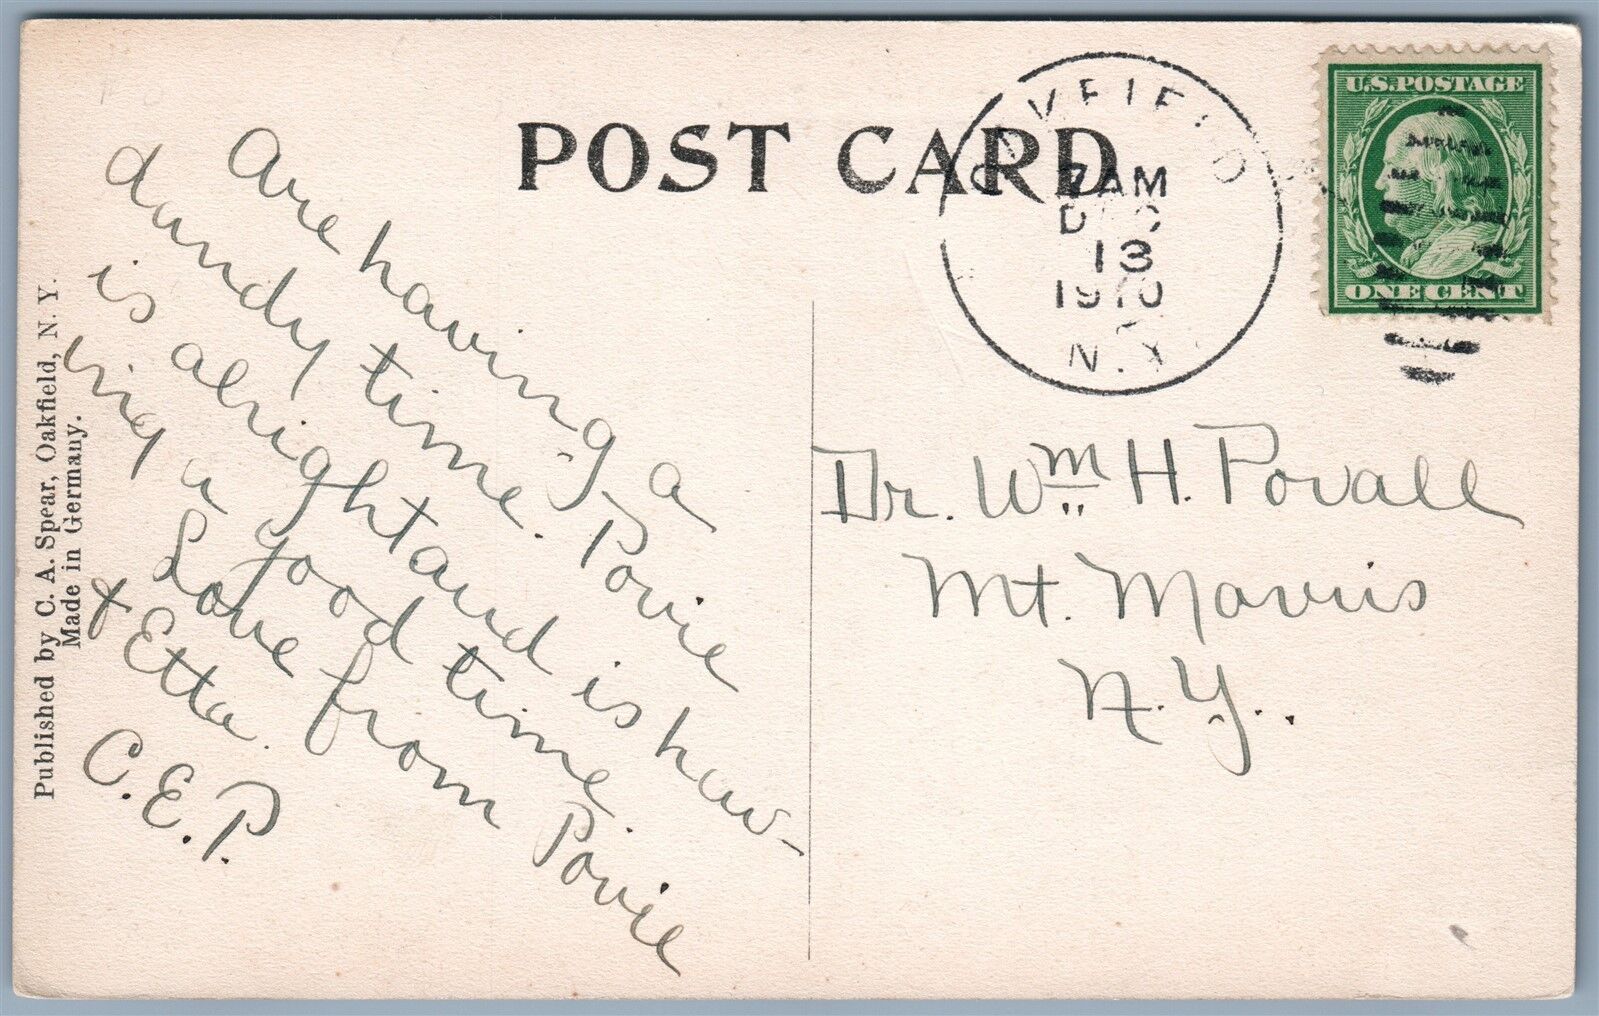 POST CARD
OAKFIELD
7 AM
DEC
13
1910
N.Y.
U.S. POSTAGE
ONE CENT
Are having a
dandy time. Povie
is alright and is hav-
ing a good time
Love from Povie
& Etta.
C.E.P.
Dr. Wm H. Povall
Mt. Morris
N.Y.
Published by C. A. Spear, Oakfield, N. Y.
Made in Germany.